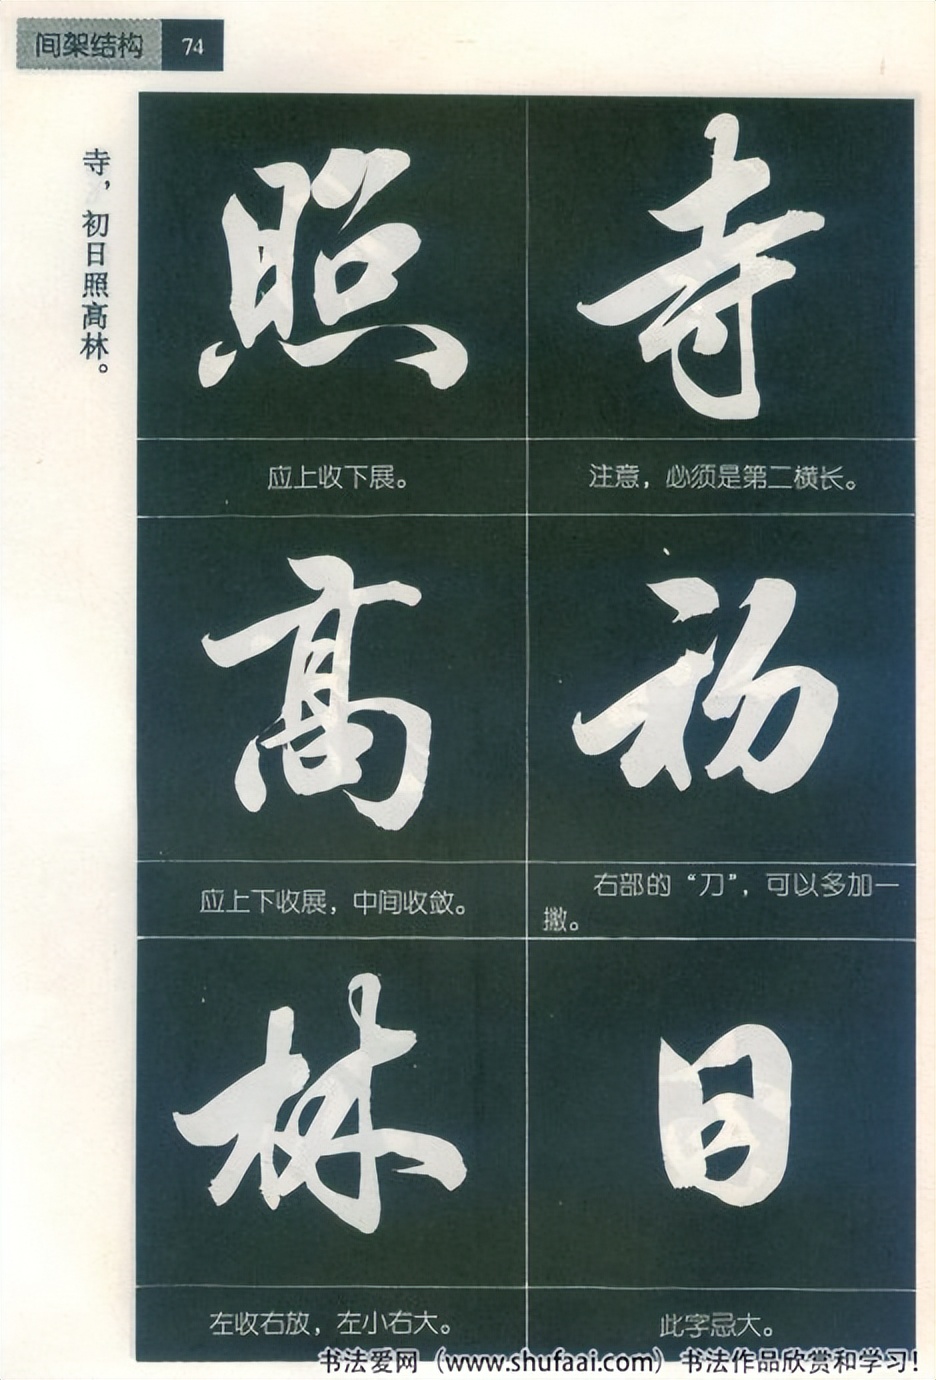 间架结构 74
寺，初日照高林。
寺
注意，必须是第二横长。
初
右部的“刀”，可以多加一
撇。
日
此字忌大。
照
应上收下展。
高
应上下收展，中间收敛。
林
左收右放，左小右大。
书法爱网（www.shufaai.com）书法作品欣赏和学习！